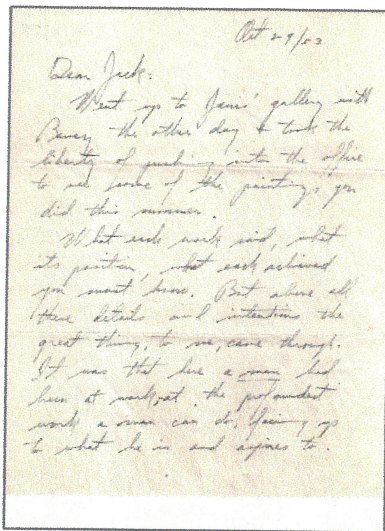 Oct 29/53
Dear Jack:
Went up to Janis' gallery with
Barney the other day & took the
liberty of pushing into the office
to see some of the paintings you
did this summer.
What each work said, what
its position, what each achieved
you must know. But above all
these details and intentions the
great thing, to me, came through.
It was that here a man had
been at work, at the profoundest
work a man can do, facing up
to what he is and aspires to.